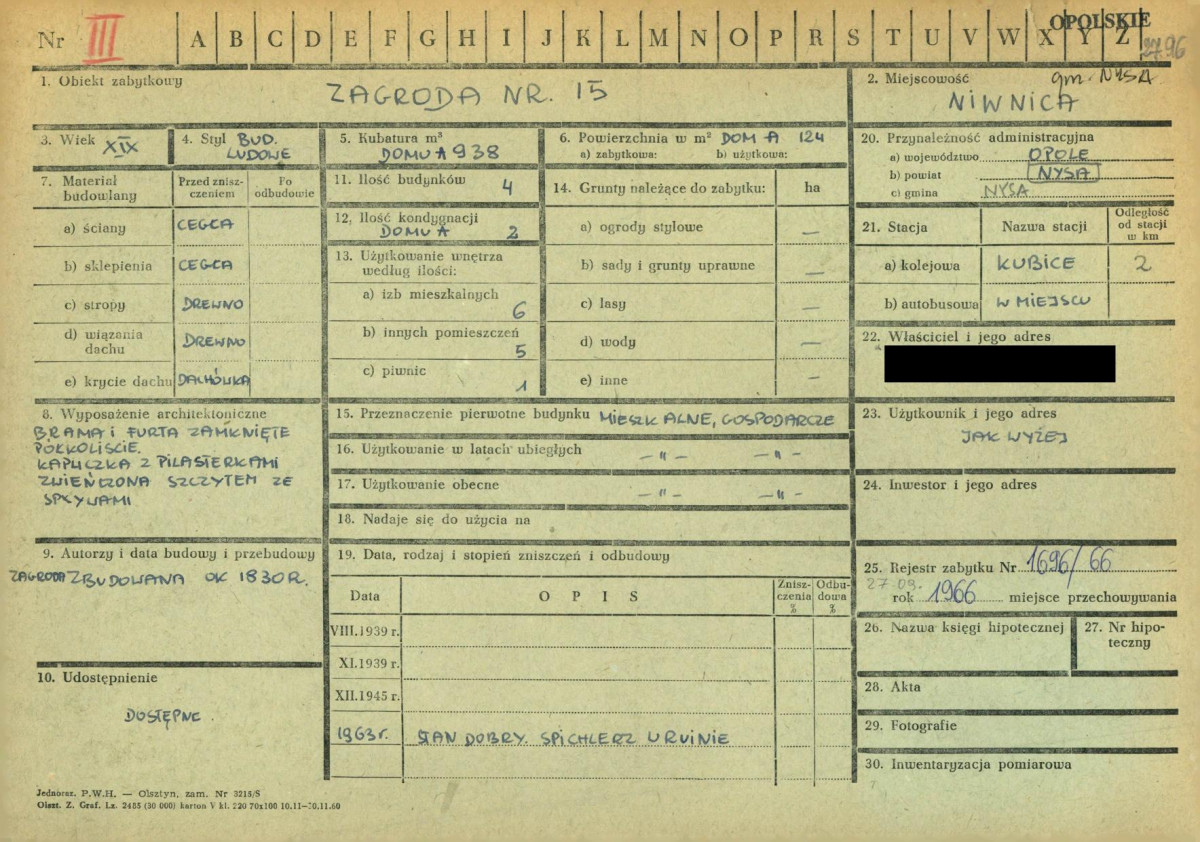 Nr III A B C D E F G H I J K L M N O P R S T U V W X Y Z
OPOLSKIE
2796
1. Obiekt zabytkowy
ZAGRODA NR. 15
2. Miejscowość gm. NYSA
NIWNICA
3. Wiek XIX
4. Styl BUD.
LUDOWE
5. Kubatura m³
DOMU A 938
6. Powierzchnia w m² DOM A 124
a) zabytkowa: b) użytkowa:
7. Materiał budowlany
Przed zniszczeniem
Po odbudowie
a) ściany CEGŁA
b) sklepienia CEGŁA
c) stropy DREWNO
d) wiązania dachu DREWNO
e) krycie dachu DACHÓWKA
8. Wyposażenie architektoniczne
BRAMA I FURTA ZAMKNIĘTE
PÓŁKOLIŚCIE.
KAPLICZKA Z PILASTERKAMI
ZWIEŃCZONA SZCZYTEM ZE
SPŁYWAMI
9. Autorzy i data budowy i przebudowy
ZAGRODA ZBUDOWANA OK 1830 R.
10. Udostępnienie
DOSTĘPNE.
11. Ilość budynków 4
12. Ilość kondygnacji
DOMU A 2
13. Użytkowanie wnętrza
według ilości:
a) izb mieszkalnych
6
b) innych pomieszczeń
5
c) piwnic
1
14. Grunty należące do zabytku: ha
a) ogrody stylowe —
b) sady i grunty uprawne —
c) lasy —
d) wody —
e) inne —
15. Przeznaczenie pierwotne budynku MIESZKALNE, GOSPODARCZE
16. Użytkowanie w latach ubiegłych —"— —"—
17. Użytkowanie obecne —"— —"—
18. Nadaje się do użycia na
19. Data, rodzaj i stopień zniszczeń i odbudowy
Data OPIS Zniszczenia % Odbudowa %
VIII.1939 r.
XI.1939 r.
XII.1945 r.
1963 r. STAN DOBRY. SPICHLERZ W RUINIE
20. Przynależność administracyjna
a) województwo OPOLE
b) powiat NYSA
c) gmina NYSA
21. Stacja Nazwa stacji Odległość od stacji w km
a) kolejowa KUBICE 2
b) autobusowa W MIEJSCU
22. Właściciel i jego adres
23. Użytkownik i jego adres
JAK WYŻEJ
24. Inwestor i jego adres
25. Rejestr zabytku Nr 1696/66
27.09.
rok 1966 miejsce przechowywania
26. Nazwa księgi hipotecznej
27. Nr hipoteczny
28. Akta
29. Fotografie
30. Inwentaryzacja pomiarowa
Jednoraz. P.W.H. — Olsztyn, zam. Nr 3215/S
Olszt. Z. Graf. Lz. 2485 (30 000) karton V kl. 220 70x100 10.11—30.11.60